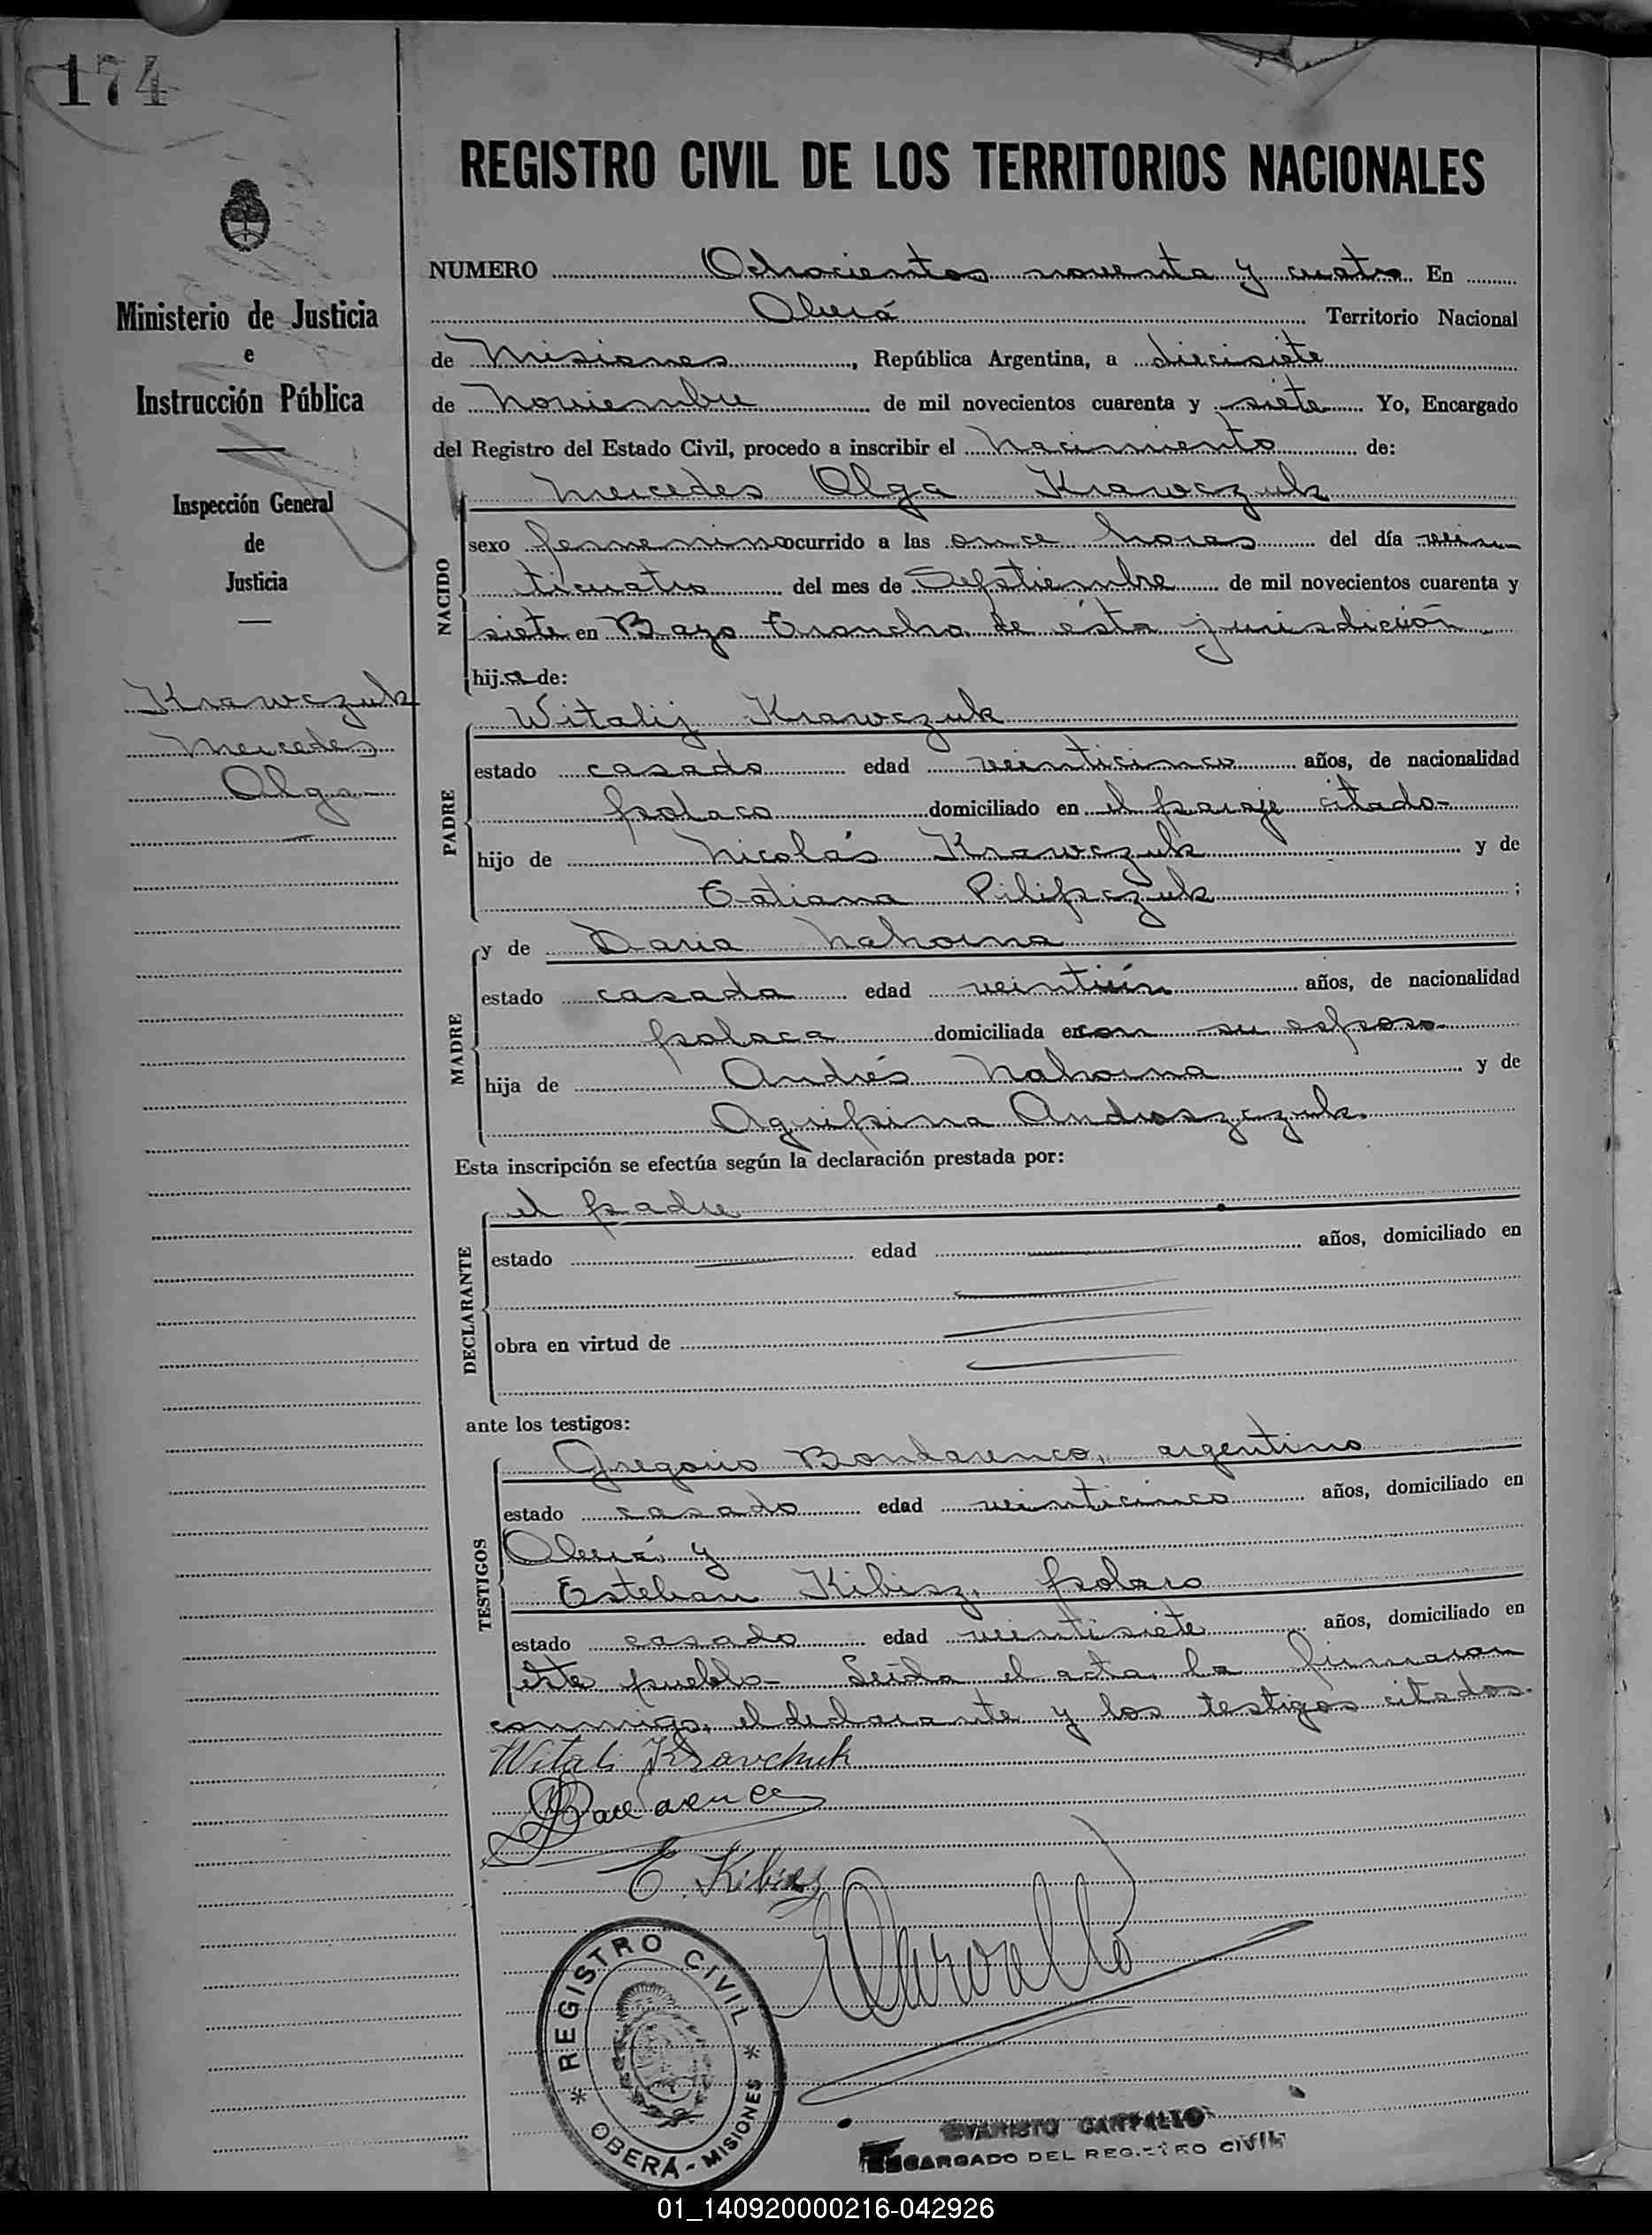 174
REGISTRO CIVIL DE LOS TERRITORIOS NACIONALES
Ministerio de Justicia
e
Instrucción Pública
Inspección General
de
Justicia
Krawczuk
Mercedes
Olga
NUMERO Ochocientos noventa y cuatro En
Oberá Territorio Nacional
de Misiones, República Argentina, a diecisiete
de Noviembre de mil novecientos cuarenta y siete Yo, Encargado
del Registro del Estado Civil, procedo a inscribir el Nacimiento de:
NACIDO
Mercedes Olga Krawczuk
sexo femenino ocurrido a las once horas del día vein
ticuatro del mes de Septiembre de mil novecientos cuarenta y
siete en Bayo Troncho de ésta jurisdicción
hija de:
PADRE
Witalij Krawczuk
estado casado edad veinticinco años, de nacionalidad
polaco domiciliado en el paraje citado-
hijo de Nicolás Krawczuk y de
Tatiana Pilipczuk ;
MADRE
y de Daria Nahorna
estado casada edad veintiún años, de nacionalidad
polaca domiciliada en con su esposo-
hija de Andrés Nahorna y de
Agripina Androszczuk.
Esta inscripción se efectúa según la declaración prestada por:
DECLARANTE
el padre
estado edad años, domiciliado en
obra en virtud de
ante los testigos:
TESTIGOS
Gregorio Bondarenco, argentino
estado casado edad veinticinco años, domiciliado en
Oberá y
Esteban Kibisz, polaco
estado casado edad veintisiete años, domiciliado en
éste pueblo- Leída el acta, la firmaron
conmigo, el declarante y los testigos citados-
Witali Kravchuk
E. Kibisz
REGISTRO CIVIL
* OBERÁ - MISIONES *
EVARISTO CARVALLO
ENCARGADO DEL REGISTRO CIVIL
01_140920000216-042926